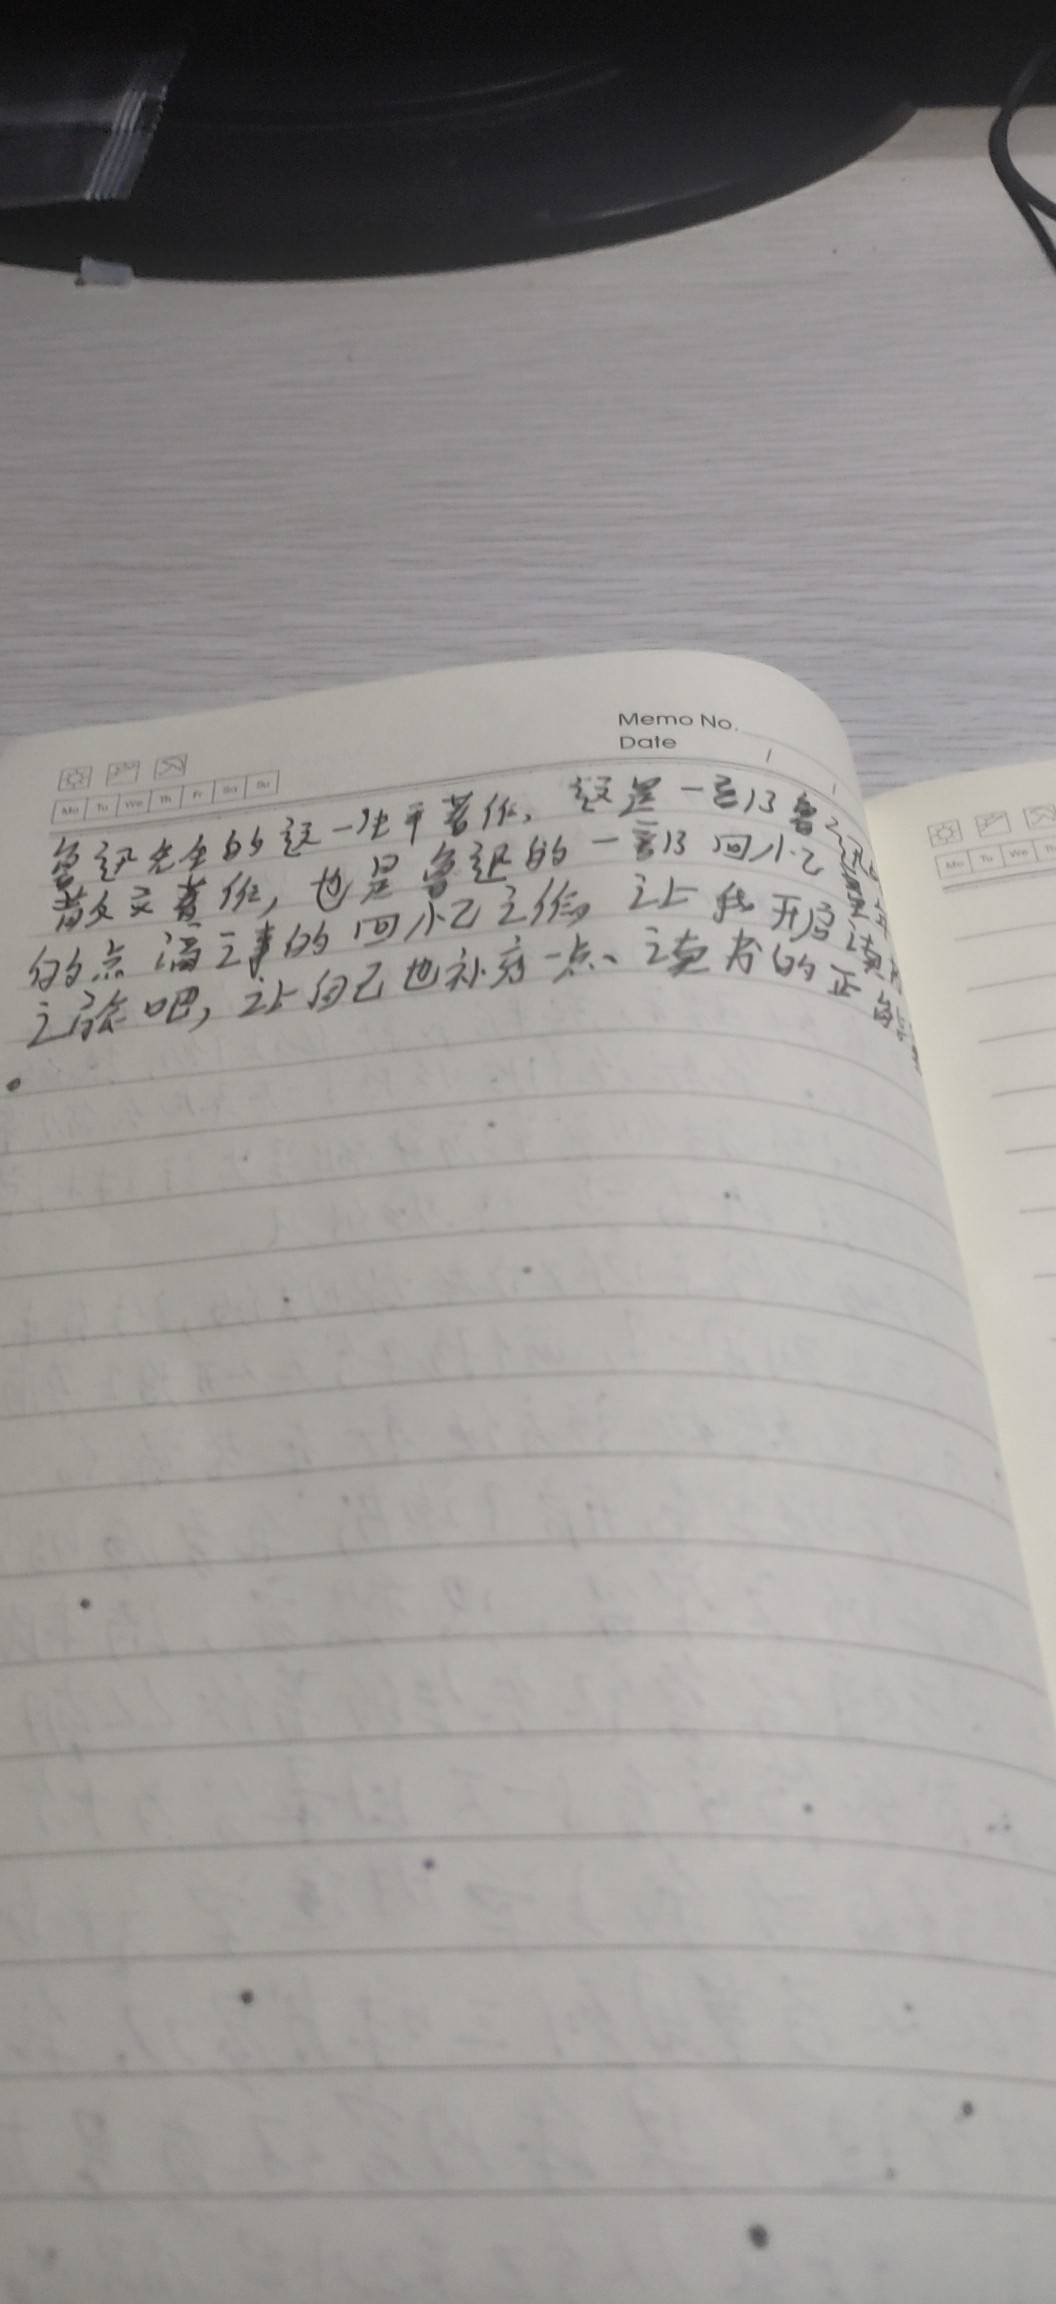 Memo No.
Date
Mo Tu We Th Fr Sa Su
鲁迅先生的这一生平著作，这是一部鲁迅
散文著作，也是鲁迅的一部回忆
的点滴之事的回忆之作，让我开启读书
之旅吧，让自己也补充一点、读书的正能
Mo Tu We Th